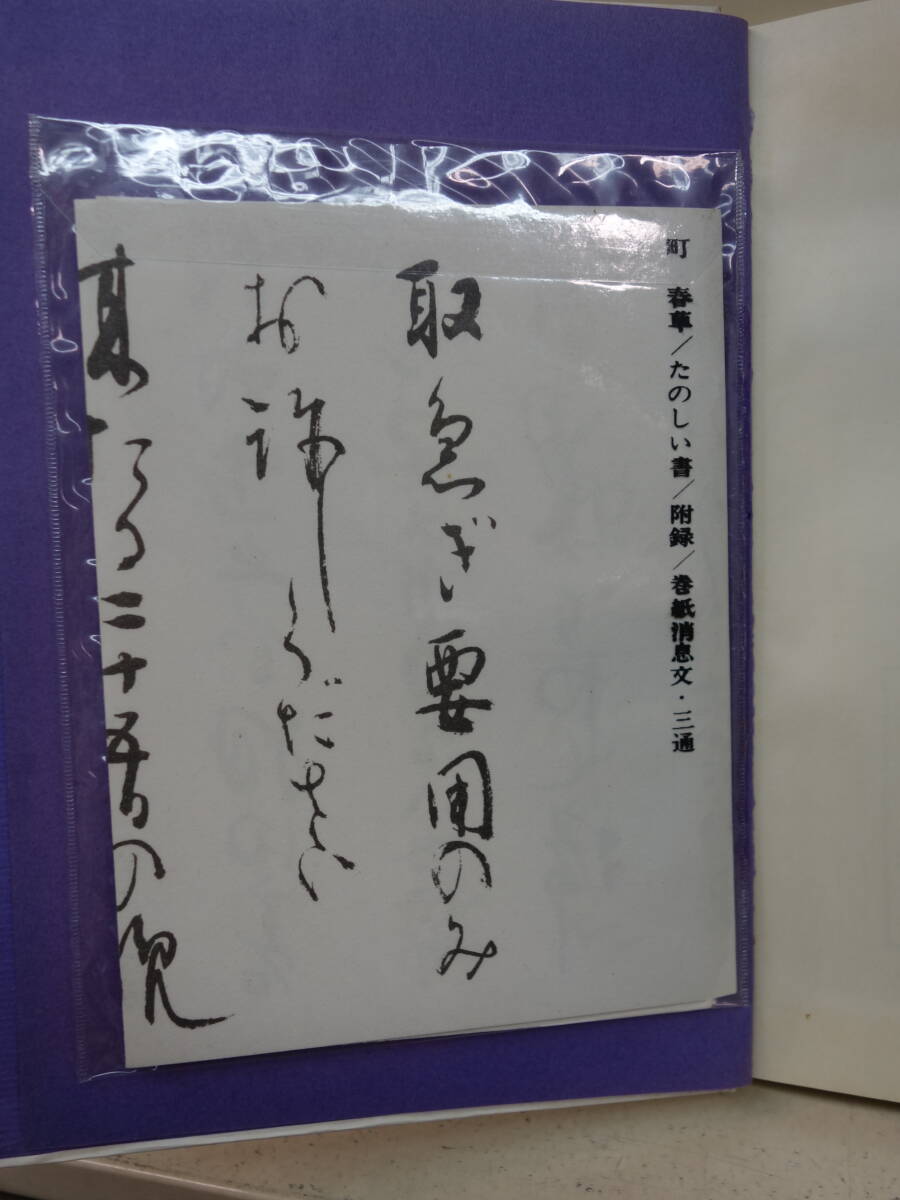 町 春草/たのしい書/附録/巻紙消息文・三通
取急ぎ要用のみ
お許しください
来たる二十五日の